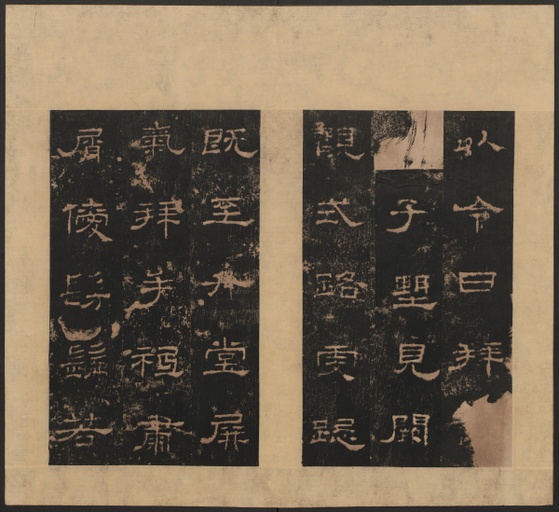 以令日拜
子望見闕
觀式路虔跽
既至升堂屏
氣拜手祗肅
屑僾髣髴若